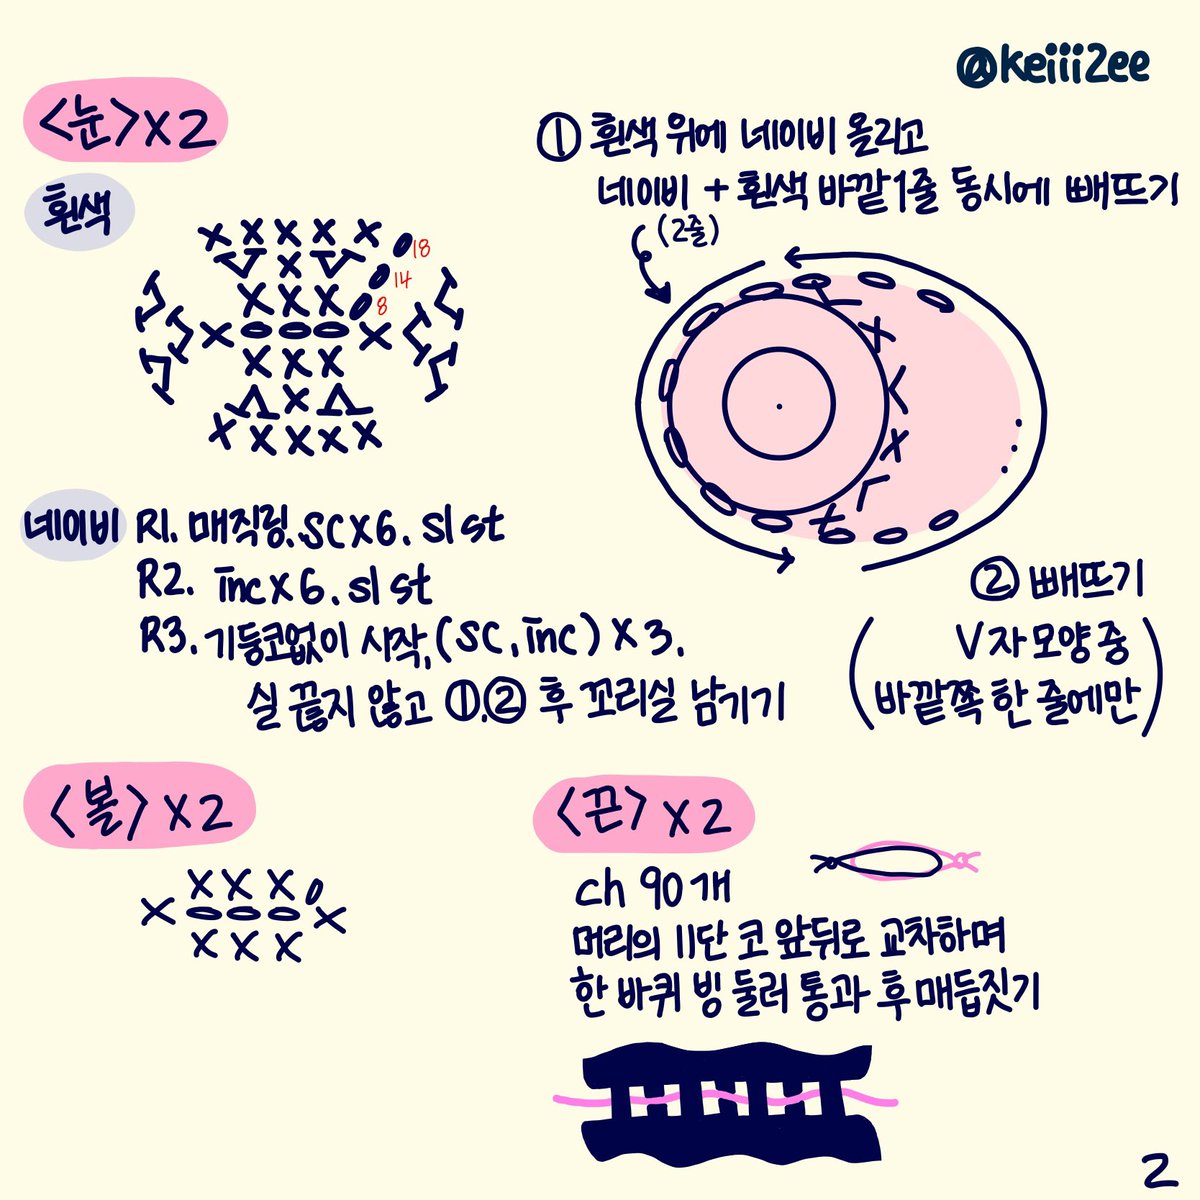 @keiii2ee
<눈>x2
흰색
18
14
8
① 흰색 위에 네이비 올리고
네이비 + 흰색 바깥1줄 동시에 빼뜨기
(2줄)
② 빼뜨기
(V자 모양 중
바깥쪽 한 줄에만)
네이비 R1. 매직링. sc x 6. sl st
R2. inc x 6. sl st
R3. 기둥코없이 시작, (sc, inc) x 3.
실 끊지 않고 ①,② 후 꼬리실 남기기
<볼> x2
<끈> x2
ch 90개
머리의 11단 코 앞뒤로 교차하며
한 바퀴 빙 둘러 통과 후 매듭짓기
2